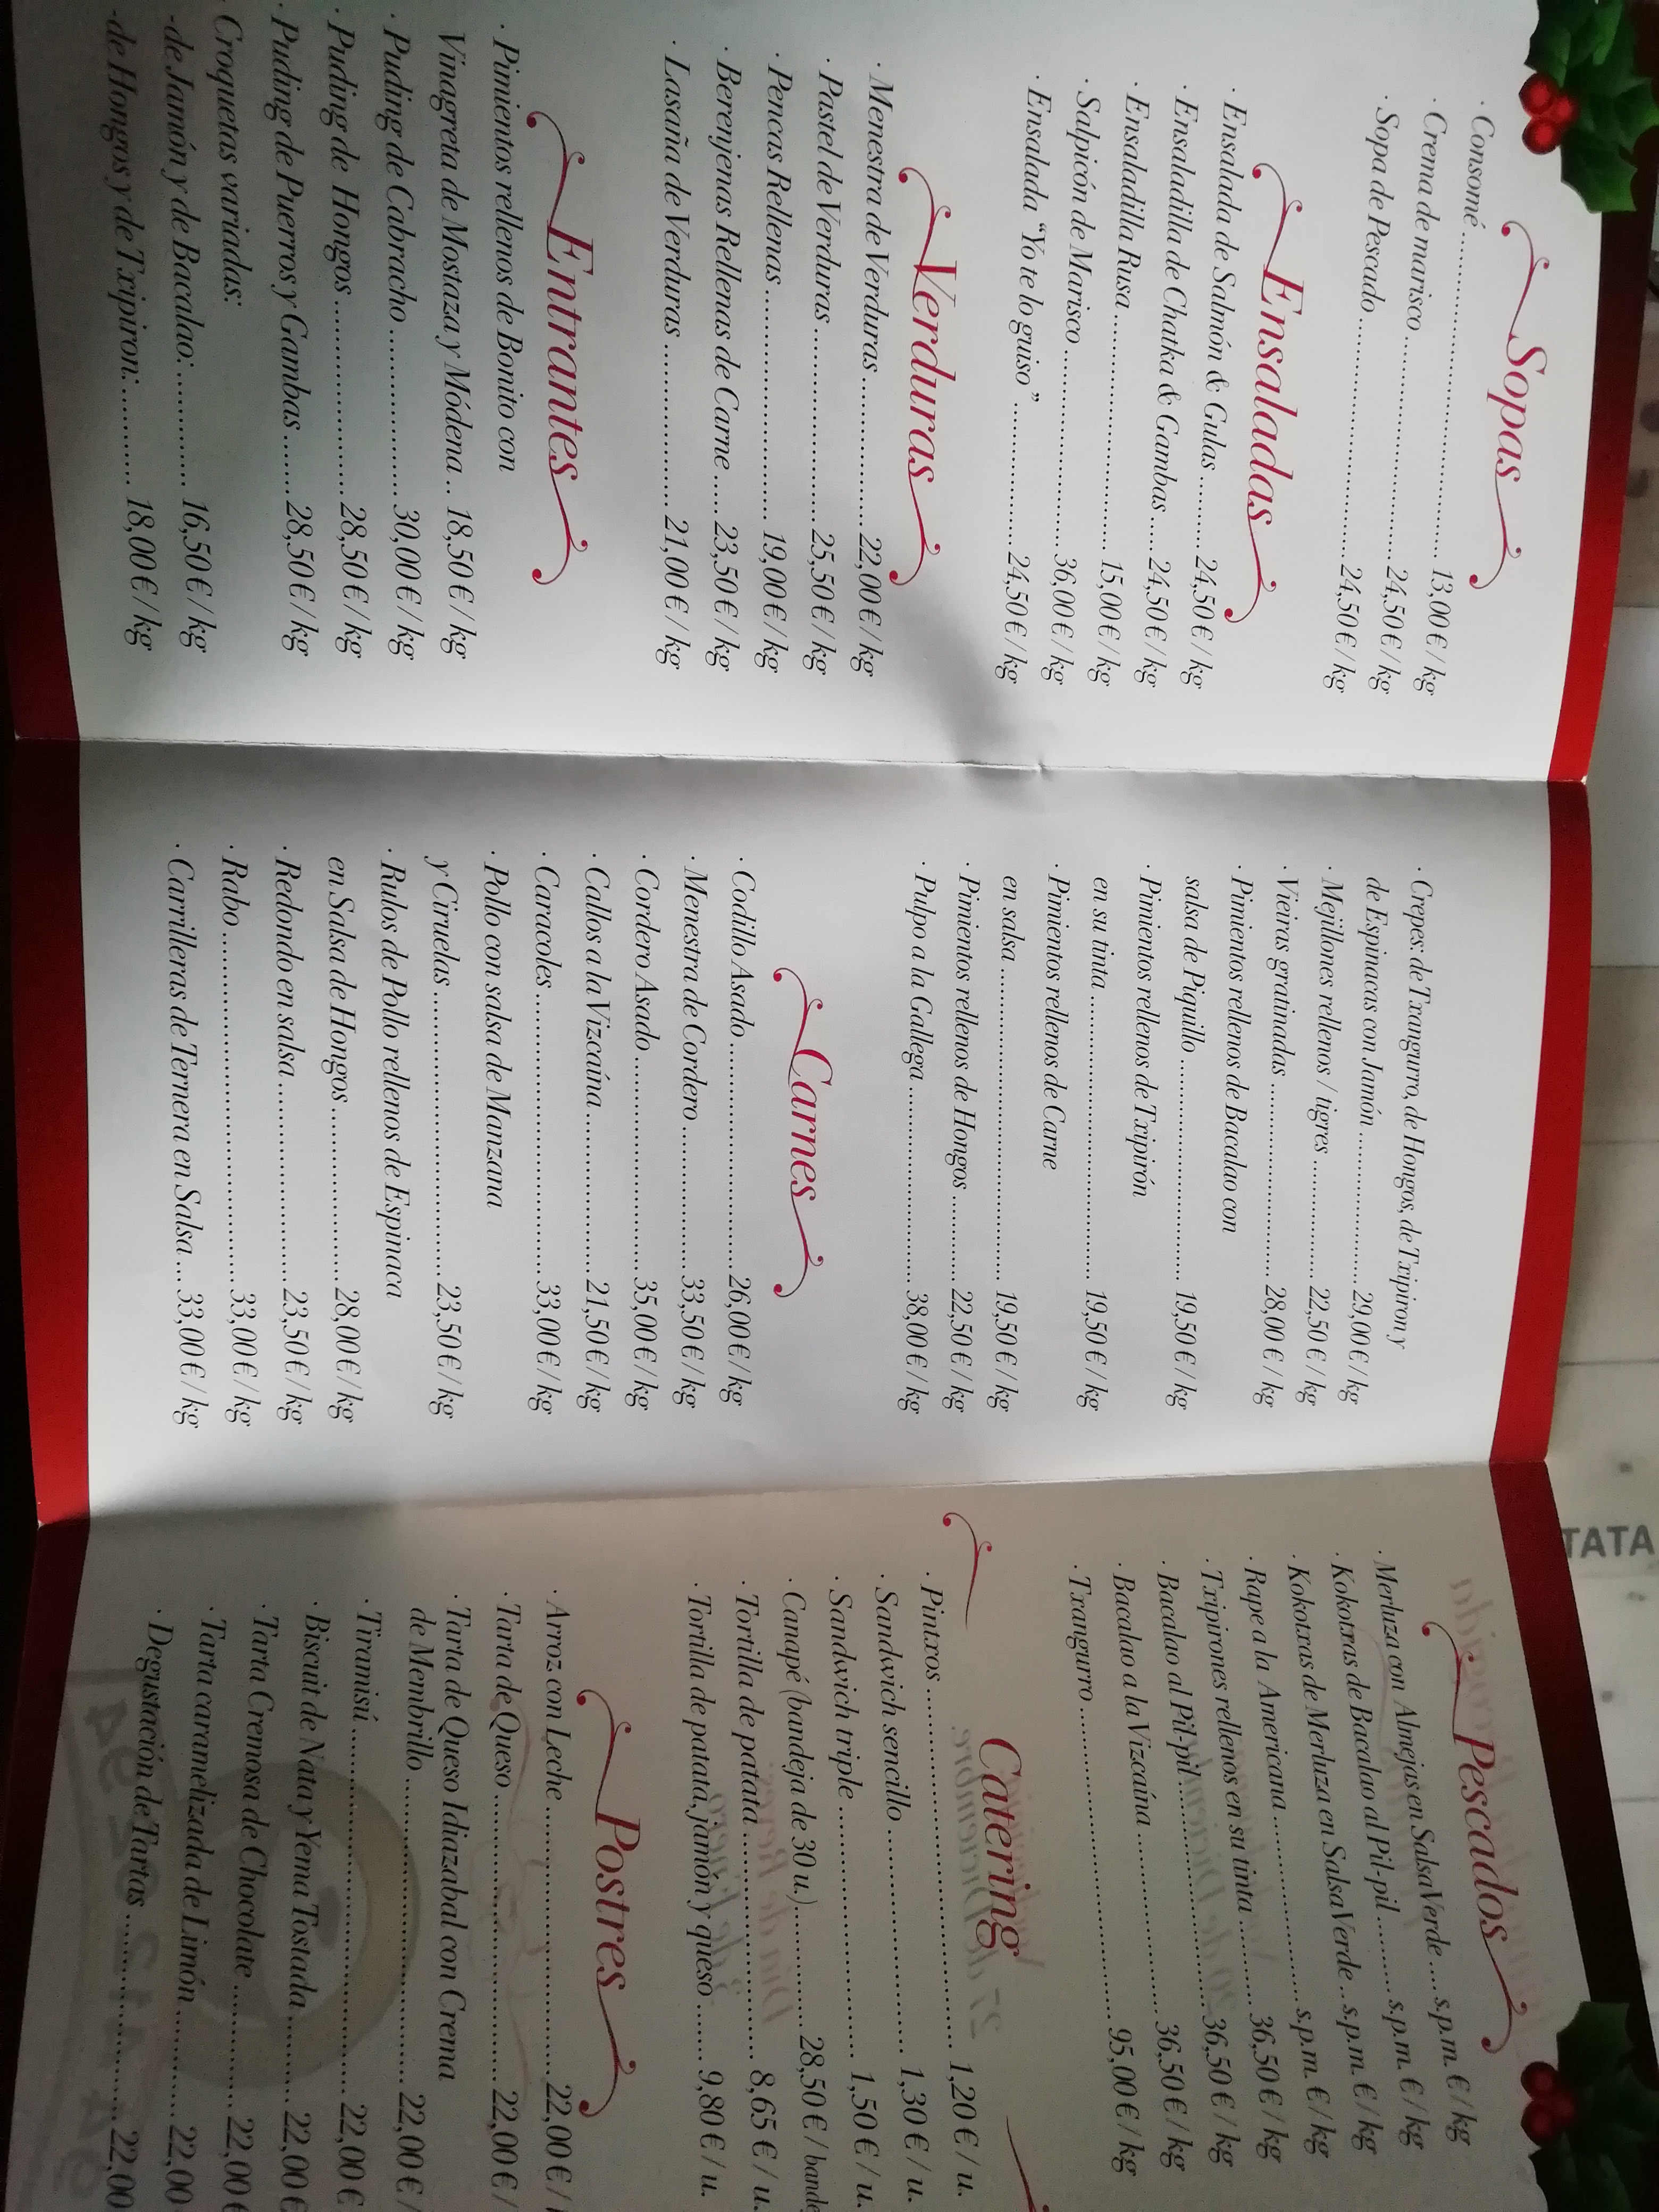 Sopas
· Consomé ........................ 13,00 € / kg
· Crema de marisco ........................ 24,50 € / kg
· Sopa de Pescado ........................ 24,50 € / kg
Ensaladas
· Ensalada de Salmón & Gulas ......... 24,50 € / kg
· Ensaladilla de Chatka & Gambas .... 24,50 € / kg
· Ensaladilla Rusa ........................ 15,00 € / kg
· Salpicón de Marisco ................... 36,00 € / kg
· Ensalada “Yo te lo guiso” .............. 24,50 € / kg
Verduras
· Menestra de Verduras ................. 22,00 € / kg
· Pastel de Verduras ..................... 25,50 € / kg
· Pencas Rellenas ........................ 19,00 € / kg
· Berenjenas Rellenas de Carne ..... 23,50 € / kg
· Lasaña de Verduras ................... 21,00 € / kg
Entrantes
· Pimientos rellenos de Bonito con
Vinagreta de Mostaza y Módena .. 18,50 € / kg
· Puding de Cabracho ................... 30,00 € / kg
· Puding de Hongos ..................... 28,50 € / kg
· Puding de Puerros y Gambas ...... 28,50 € / kg
· Croquetas variadas:
-de Jamón y de Bacalao: ............ 16,50 € / kg
-de Hongos y de Txipiron: ........... 18,00 € / kg
· Crepes: de Txangurro, de Hongos, de Txipiron y
de Espinacas con Jamón ................. 29,00 € / kg
· Mejillones rellenos / tigres .............. 22,50 € / kg
· Vieiras gratinadas ........................ 28,00 € / kg
· Pimientos rellenos de Bacalao con
salsa de Piquillo ........................ 19,50 € / kg
· Pimientos rellenos de Txipirón
en su tinta ........................ 19,50 € / kg
· Pimientos rellenos de Carne
en salsa ........................ 19,50 € / kg
· Pimientos rellenos de Hongos ........... 22,50 € / kg
· Pulpo a la Gallega ........................ 38,00 € / kg
Carnes
· Codillo Asado ........................ 26,00 € / kg
· Menestra de Cordero ................. 33,50 € / kg
· Cordero Asado ........................ 35,00 € / kg
· Callos a la Vizcaína ................... 21,50 € / kg
· Caracoles ........................ 33,00 € / kg
· Pollo con salsa de Manzana
y Ciruelas ........................ 23,50 € / kg
· Rulos de Pollo rellenos de Espinaca
en Salsa de Hongos ................... 28,00 € / kg
· Redondo en salsa ..................... 23,50 € / kg
· Rabo ........................ 33,00 € / kg
· Carrilleras de Ternera en Salsa ... 33,00 € / kg
Pescados
· Merluza con Almejas en Salsa Verde .... s.p.m. € / kg
· Kokotxas de Bacalao al Pil-pil ......... s.p.m. € / kg
· Kokotxas de Merluza en Salsa Verde .. s.p.m. € / kg
· Rape a la Americana ................... s.p.m. € / kg
· Txipirones rellenos en su tinta ........ 36,50 € / kg
· Bacalao al Pil-pil ..................... 36,50 € / kg
· Bacalao a la Vizcaína ................. 36,50 € / kg
· Txangurro ........................ 95,00 € / kg
Catering
· Pintxos ........................ 1,20 € / u.
· Sandwich sencillo ..................... 1,30 € / u.
· Sandwich triple ........................ 1,50 € / u.
· Canapé (bandeja de 30 u.) .......... 28,50 € / bande
· Tortilla de patata ..................... 8,65 € / u.
· Tortilla de patata, jamón y queso ...... 9,80 € / u.
Postres
· Arroz con Leche ........................ 22,00 € /
· Tarta de Queso ........................ 22,00 € /
· Tarta de Queso Idiazabal con Crema
de Membrillo ........................ 22,00 € /
· Tiramisú ........................ 22,00 €
· Biscuit de Nata y Yema Tostada ......... 22,00 €
· Tarta Cremosa de Chocolate ............ 22,00 €
· Tarta caramelizada de Limón ........... 22,00
· Degustación de Tartas ................. 22,00
TATA